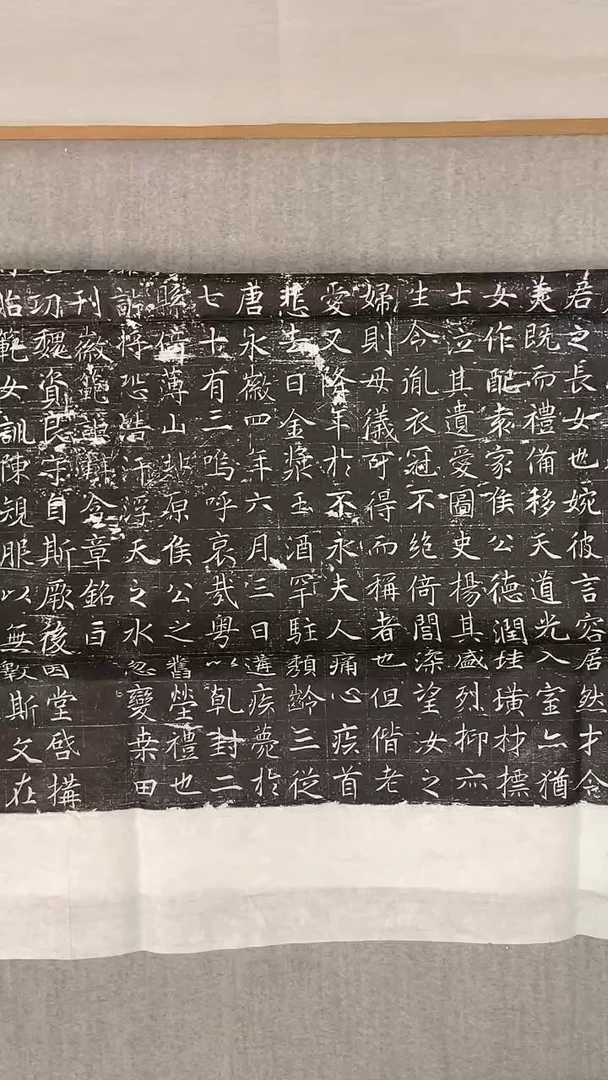 君之長女也婉彼言容居然才令
美既而禮備移天道光入室亦猶
女作配袁家侯公德潤珪璜材標
士泣其遺愛圖史揚其盛烈抑亦
生令胤衣冠不絕倚閭深望汝之
婦則母儀可得而稱者也但偕老
愛又降年於不永夫人痛心疾首
悲去日金漿玉酒罕駐頹齡三從
唐永徽四年六月三日遘疾薨於
七十有三嗚呼哀哉粵以乹封二
縣倍薄山北原侯公之舊塋禮也
詁將恐浩汗浮天之水忽變桒田
刊徽範 含章銘曰
功魏資良守自斯厥後因堂啓搆
貽範女訓陳規服以無斁斯文在